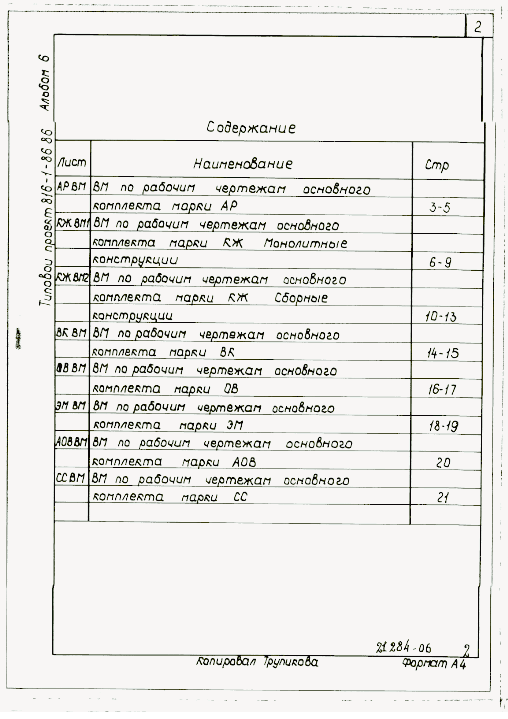 2
Альбом 6
Типовой проект 816-1-86.86
Содержание
Лист Наименование Стр
АР ВМ ВМ по рабочим чертежам основного
комплекта марки АР 3-5
КЖ ВМ1 ВМ по рабочим чертежам основного
комплекта марки КЖ Монолитные
конструкции 6-9
КЖ ВМ2 ВМ по рабочим чертежам основного
комплекта марки КЖ Сборные
конструкции 10-13
ВК ВМ ВМ по рабочим чертежам основного
комплекта марки ВК 14-15
ОВ ВМ ВМ по рабочим чертежам основного
комплекта марки ОВ 16-17
ЭМ ВМ ВМ по рабочим чертежам основного
комплекта марки ЭМ 18-19
АОВ ВМ ВМ по рабочим чертежам основного
комплекта марки АОВ 20
СС ВМ ВМ по рабочим чертежам основного
комплекта марки СС 21
21284-06 2
Копировал Трупикова Формат А4